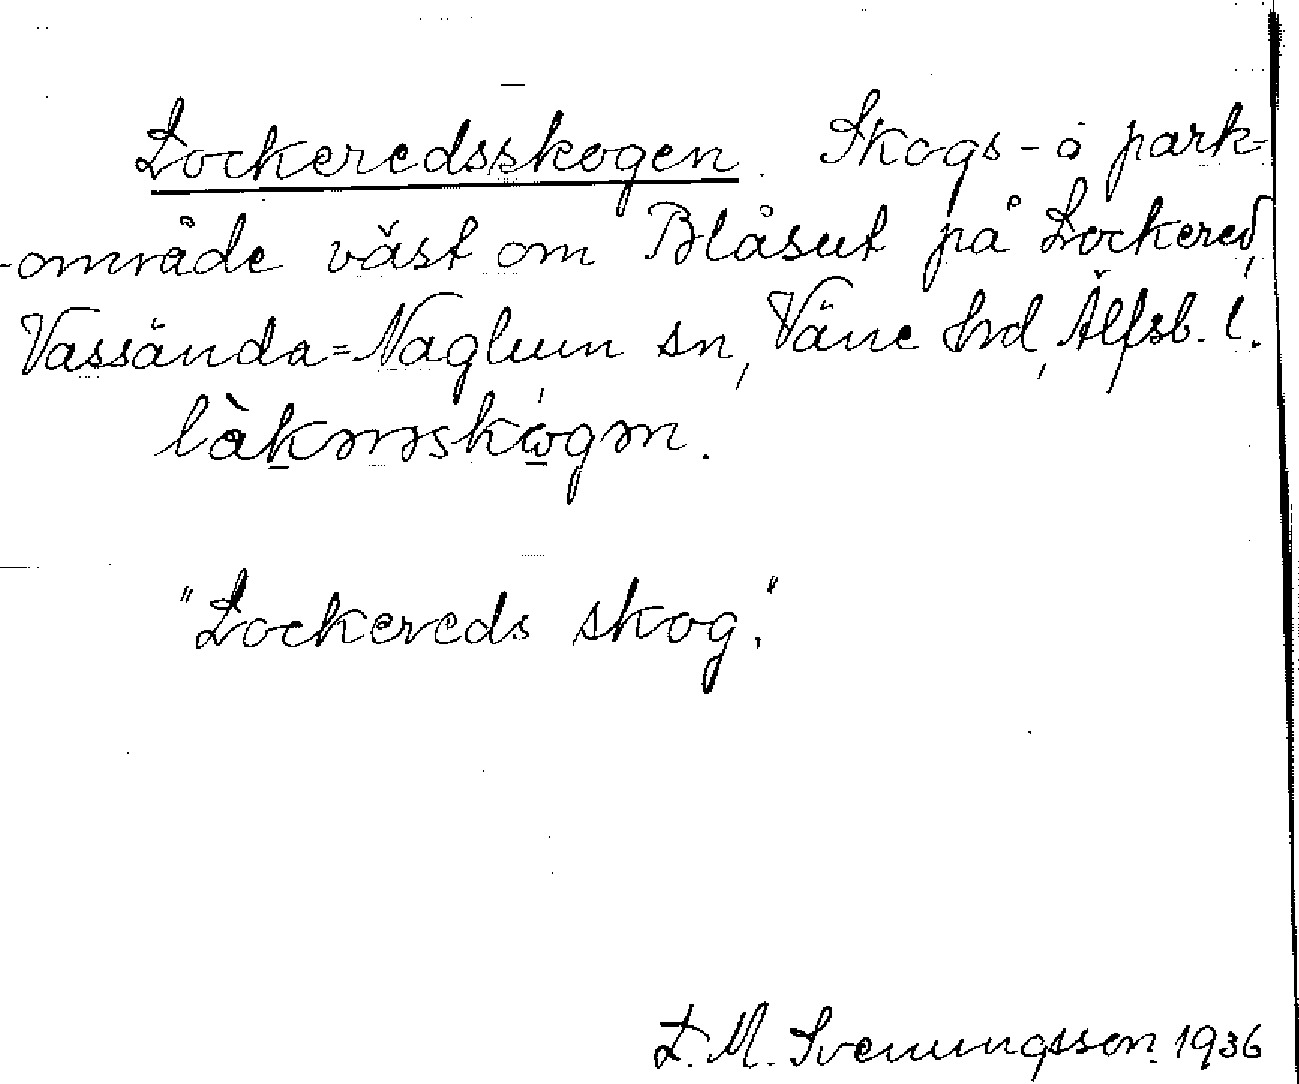 Lockeredsskogen. Skogs- å park-
område väst om Blåsut på Lockered,
Vassända=Naglum sn, Väne hrd, Älfsb. l.
"Lockereds skog."
L. M. Svenungsson. 1936